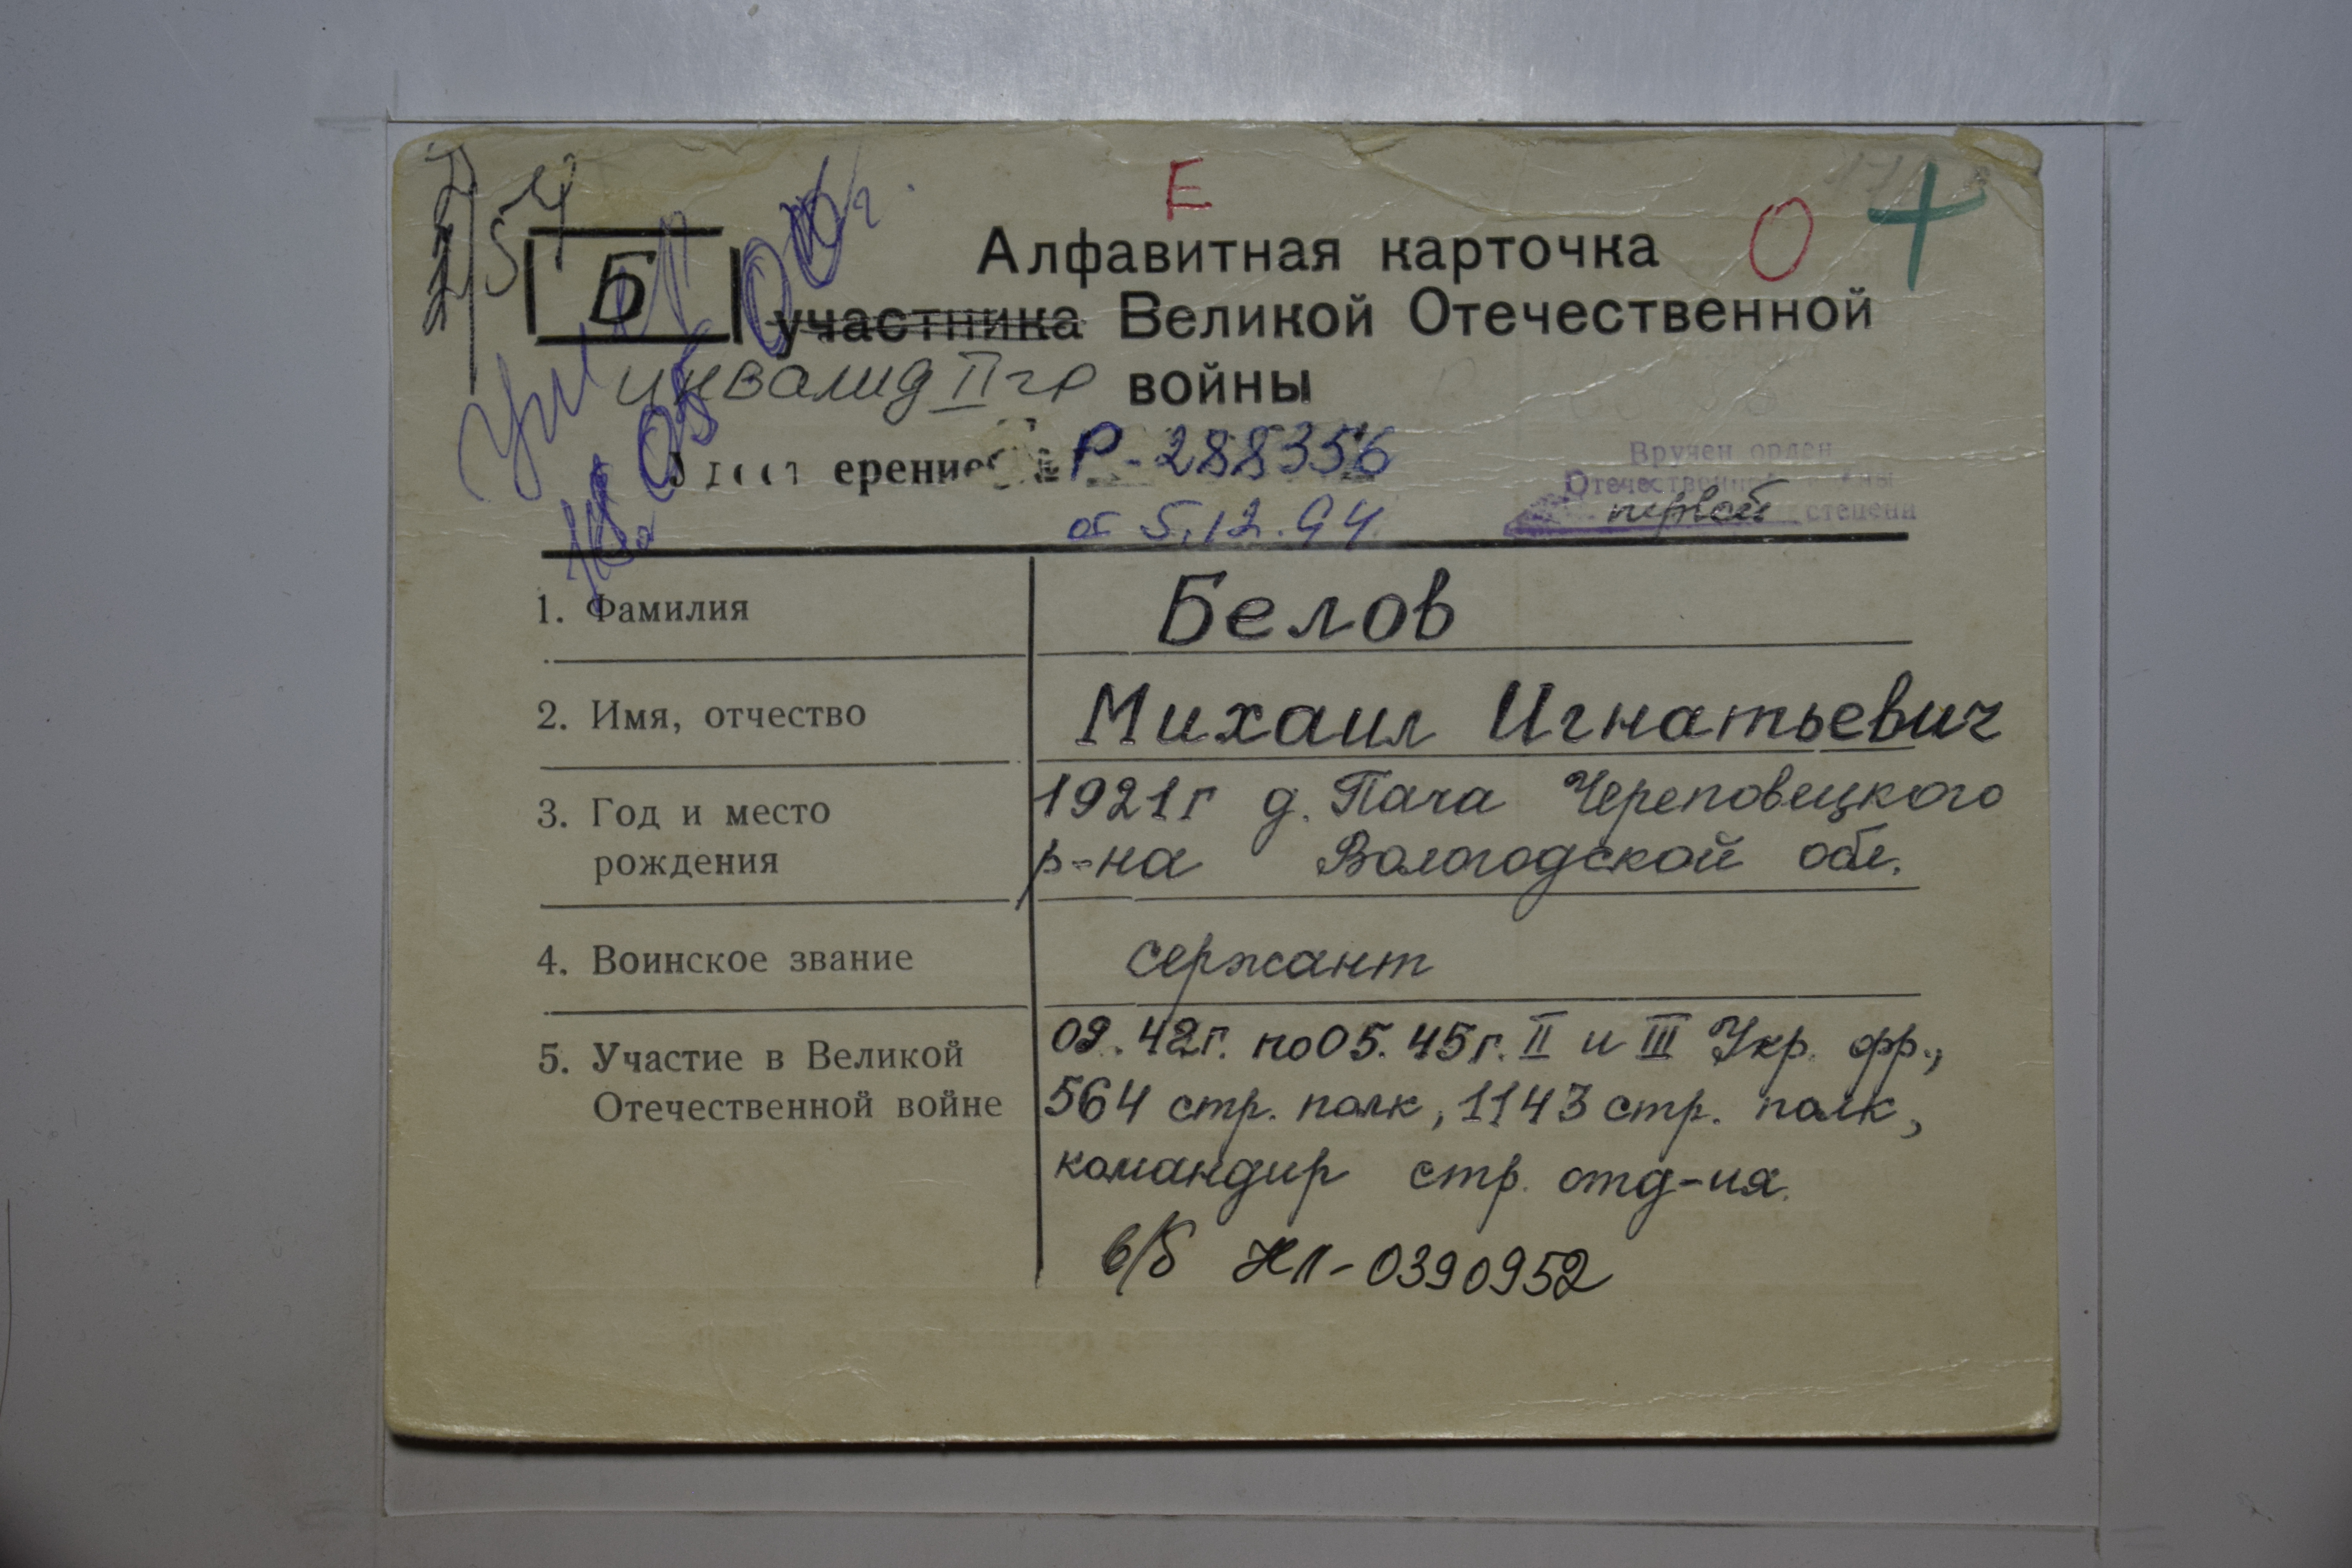 Е
Алфавитная карточка
О +
Б
участника Великой Отечественной
инвалид II гр войны
ерение Р-288356
от 5.12.94.
Вручен орден
Отечественной войны
первой степени
1. Фамилия Белов
2. Имя, отчество Михаил Игнатьевич
3. Год и место 1921г д. Пача Череповецкого
рождения р-на Вологодской обл.
4. Воинское звание сержант
5. Участие в Великой 09.42г. по 05.45г. II и III Укр. фр.,
Отечественной войне 564 стр. полк, 1143 стр. полк,
командир стр. отд-ия.
в/б НЛ-0390952